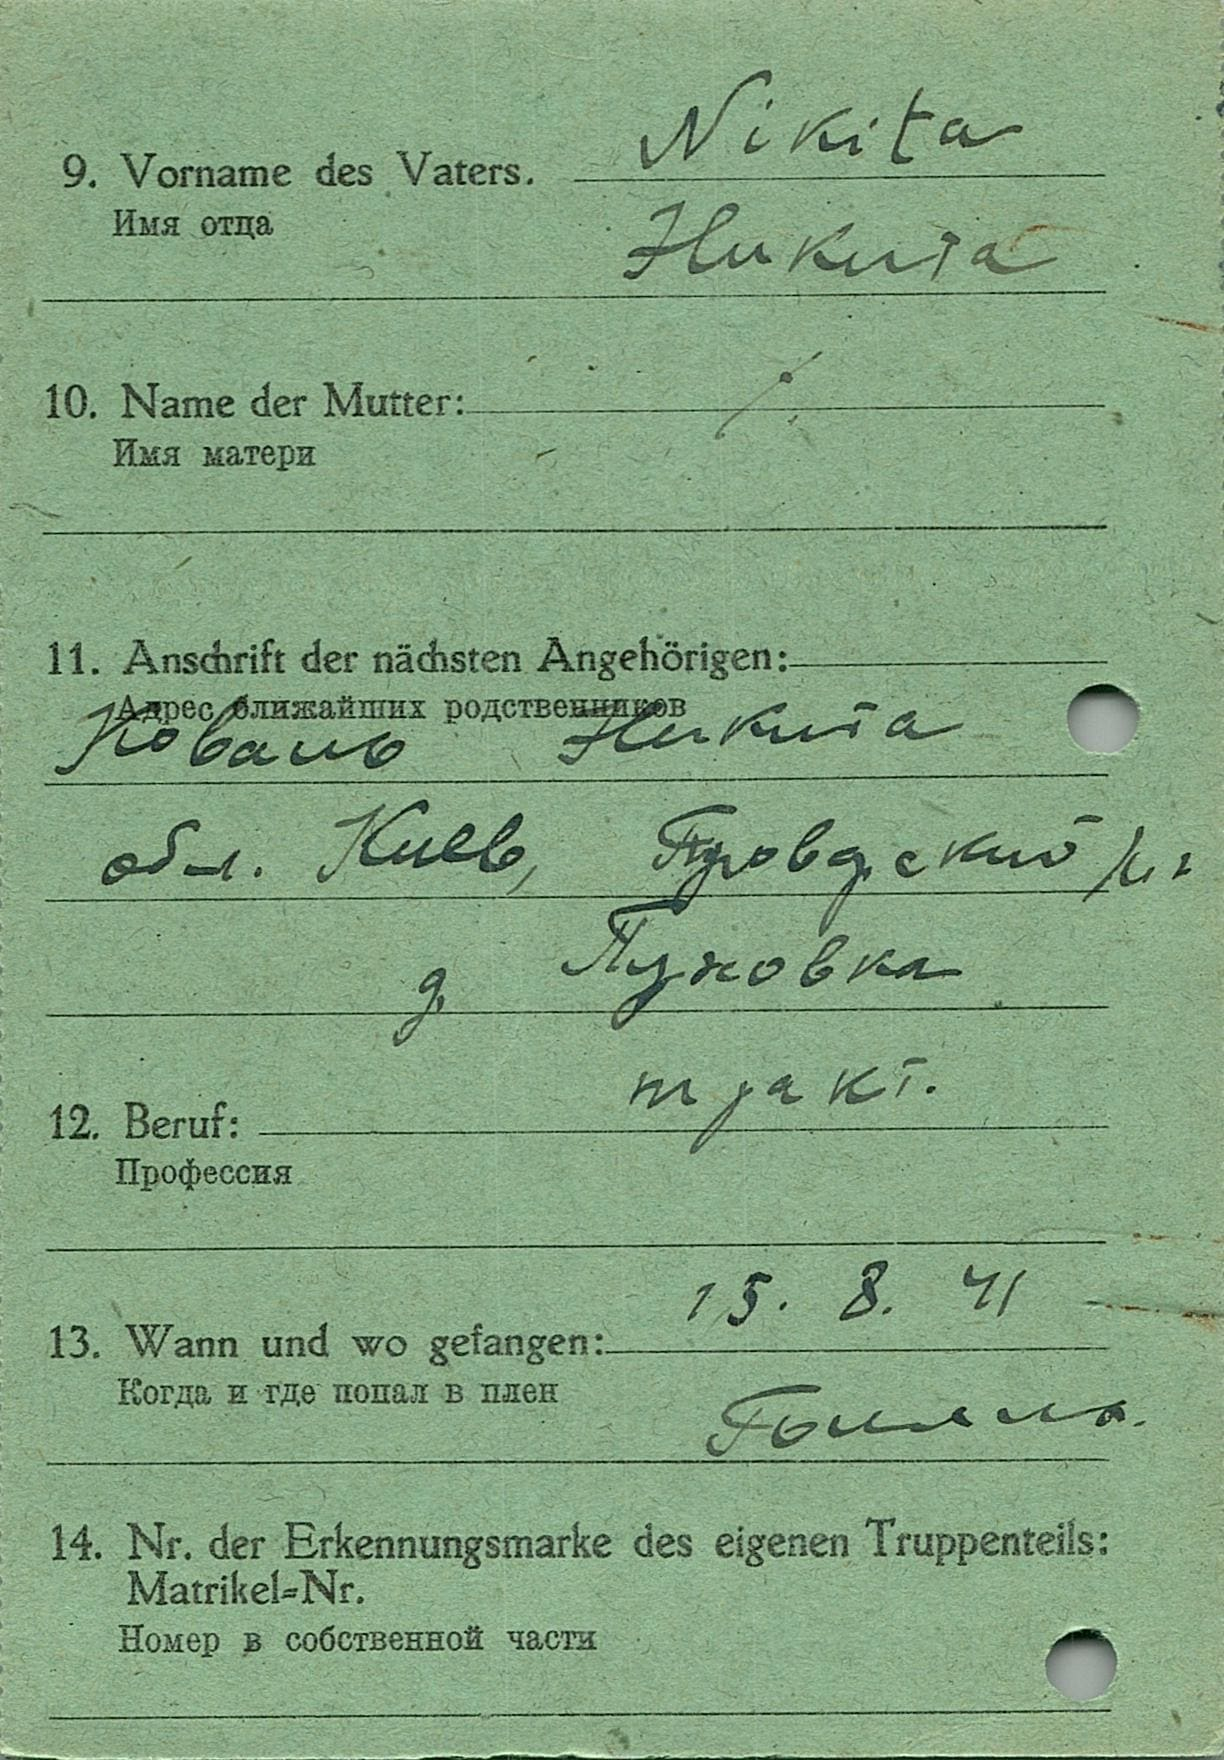 Nikita
9. Vorname des Vaters.
Имя отца
Никита
10. Name der Mutter:
Имя матери
11. Anschrift der nächsten Angehörigen:
Адрес ближайших родственников
Коваль Никита
обл. Киев,
д. Пуховка
тракт.
12. Beruf:
Профессия
15. 8. 41
13. Wann und wo gefangen:
Когда и где попал в плен
14. Nr. der Erkennungsmarke des eigenen Truppenteils:
Matrikel=Nr.
Номер в собственной части